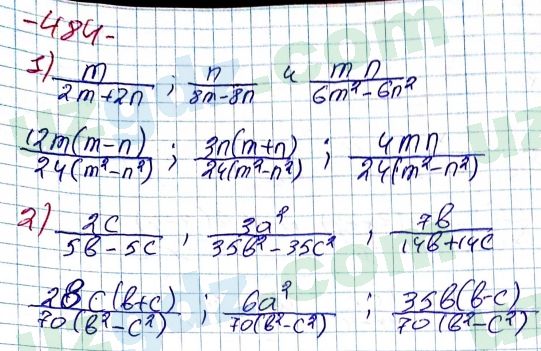 -484-
1) m/(2m+2n) ; n/(8m-8n) и mn/(6m²-6n²)
12m(m-n)/24(m²-n²) ; 3n(m+n)/24(m²-n²) ; 4mn/24(m²-n²)
2) 2c/(5b-5c) , 3a²/(35b²-35c²) , 7b/(14b+14c)
28c(b+c)/70(b²-c²) ; 6a²/70(b²-c²) ; 35b(b-c)/70(b²-c²)